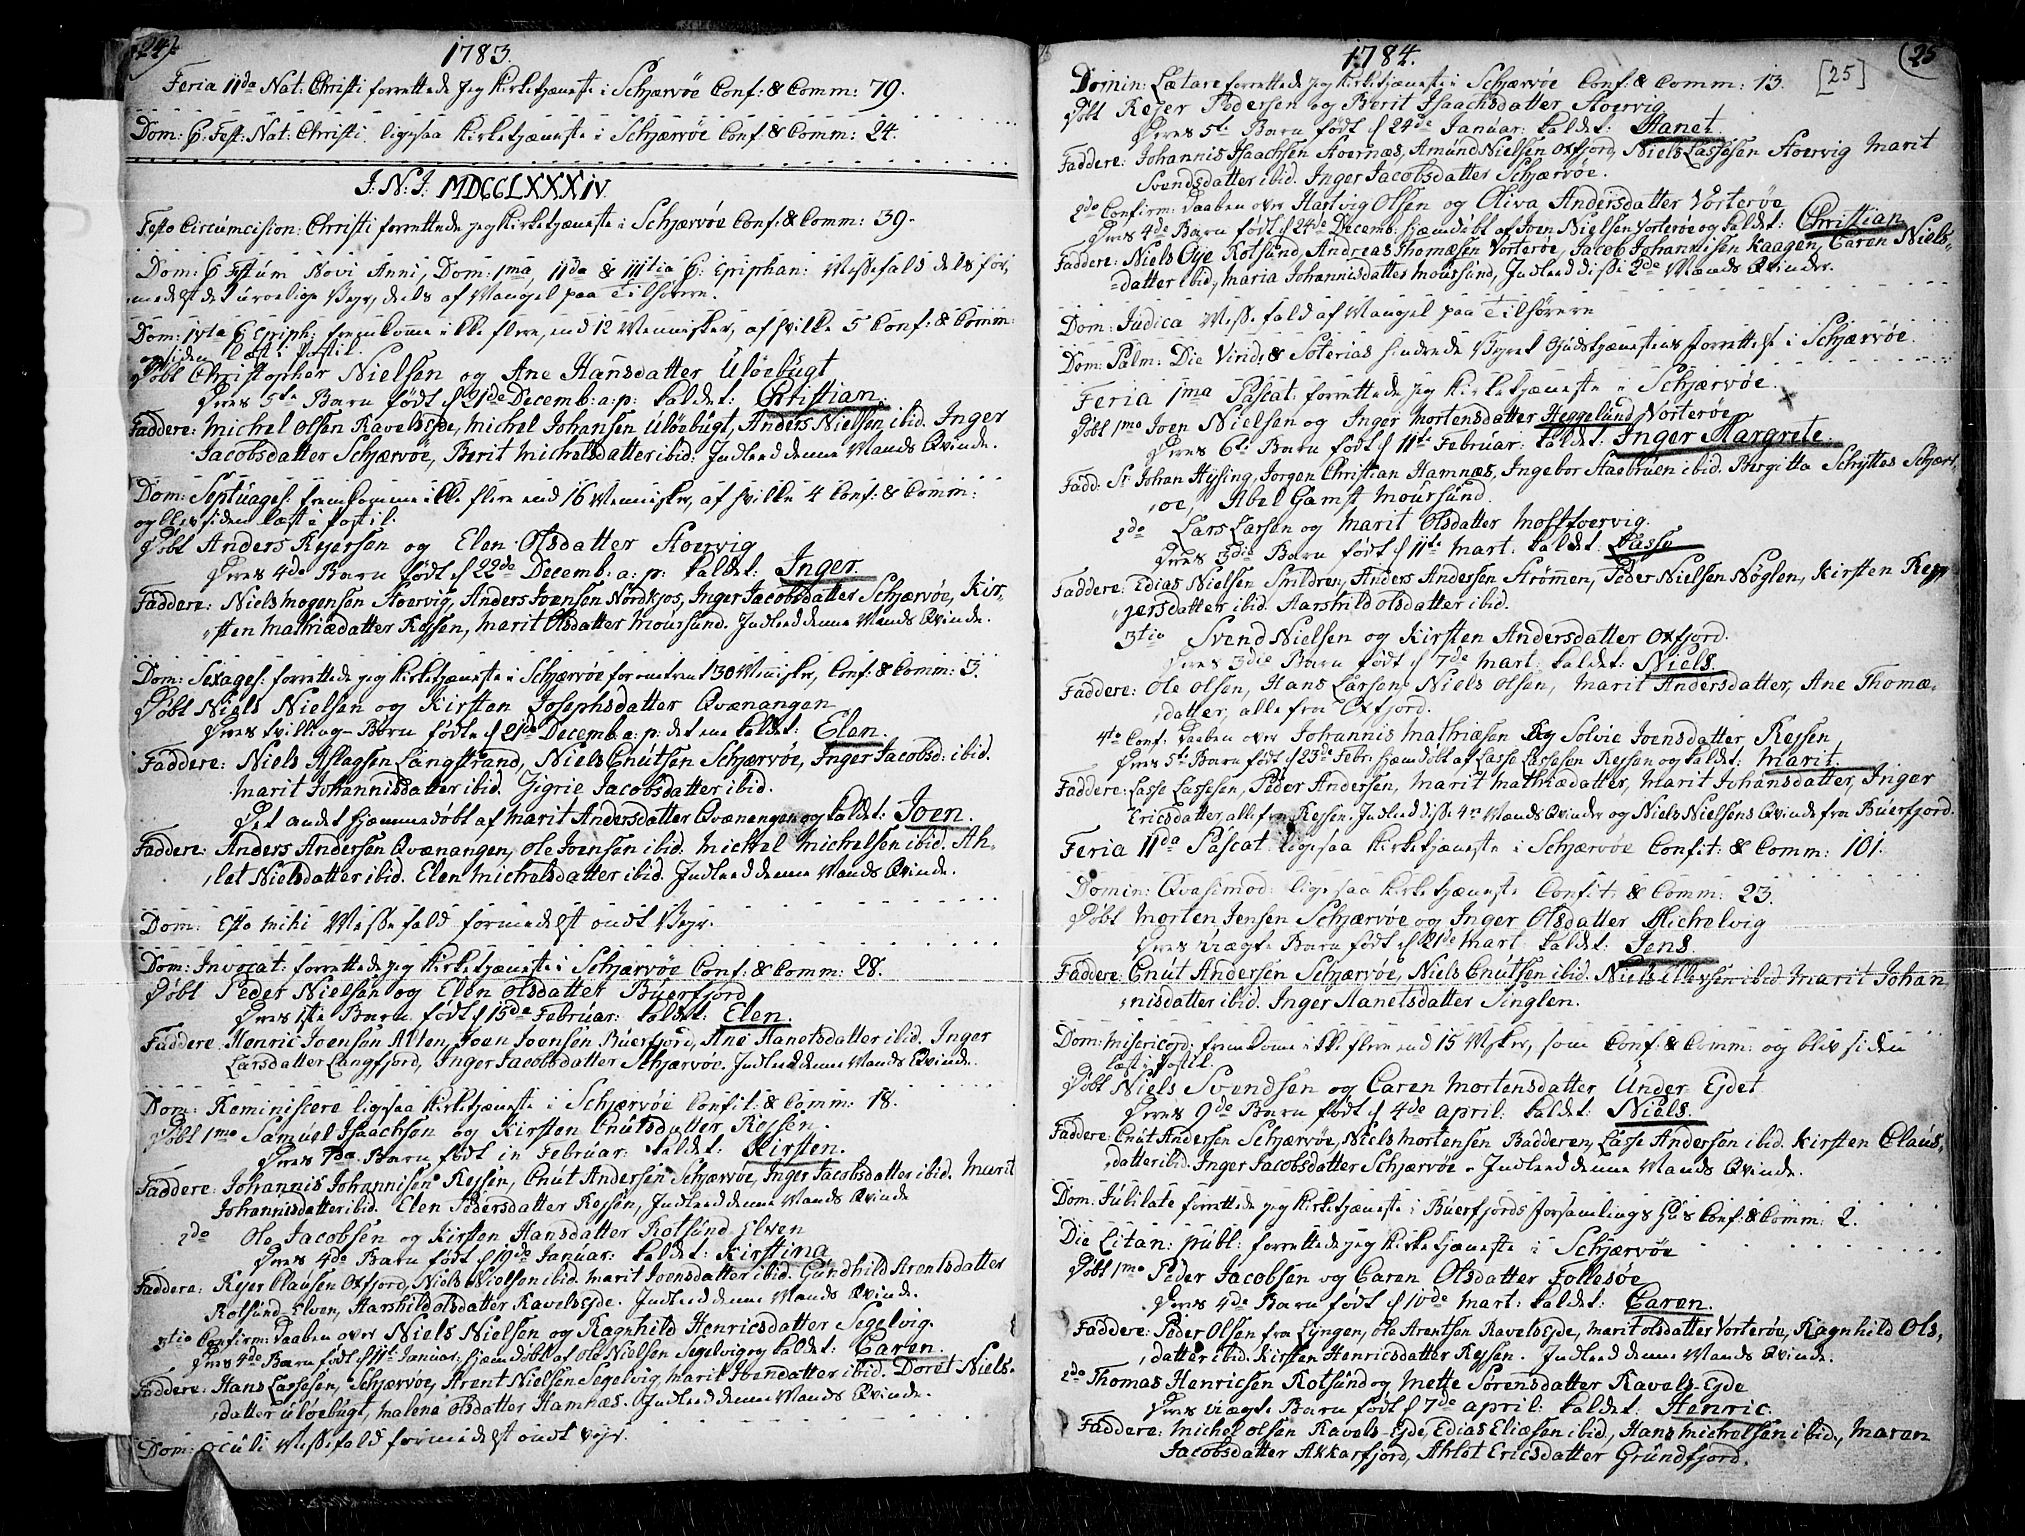 24)
1783.
Feria IIda Nat: Christi forrettede jeg Kirketjæneste i Schjærvöe Conf: & Comm: 79.
Dom: P. Fest: Nat: Christi. ligesaa Kirketjæneste i Schjærvöe Conf: & Comm: 24.
J: N: J: MDCCLXXXIV.
Festo Circumcision: Christi forrettede jeg Kirketjæneste i Schjærvöe Conf: & Comm: 39.
Dom: P. Festum Novi Anni, Dom: Ima, IIda & IIItia P: Epiphan: Messefald dels for,
medelst det urolige Vejr, dels af Mangel paa Tilhörere.
Dom: IVta P. Epiph: fremkomme ikke flere, end 12 Mennisker, af hvilke 5 Conf: & Comm:
og siden læst i Postil.
Döbt Christopher Nielsen og Ane Hansdatter Ulöebugt
Deres 5te Barn födt d 21de Decemb: a: p: kaldet: Christian.
Faddere: Michel Olsen Ravelsejde, Michel Johansen Ulöebugt, Anders Nielsen ibid. Inger
Jacobsdatter Schjærvöe, Berit Michelsdatter ibid: Indleed denne Mands Qvinde.
Dom: Septuages: fremkomme ikke flere end 16 Mennisker, af hvilke 4 Conf: & Comm:
og blev siden læst i Postil.
Döbt Anders Rejersen og Elen Olsdatter Stoervig
Deres 4de Barn födt d 22de Decemb: a: p: kaldet: Inger.
Faddere: Niels Mogensen Stoervig, Anders Joensen Nordkjos, Inger Jacobsdatter Schjærvöe, Kir,
sten Mathiædatter Rejsen, Marit Olsdatter Moursund. Indleed denne Mands Qvinde.
Dom: Sexages: forrettede jeg Kirketjæneste i Schjærvöe for omtrent 30 Mennisker, Conf: & Comm: 3.
Döbt Niels Nielsen og Kirsten Josephsdatter Qvænangen
Deres tvilling-Börn födte d 21de Decemb: a: p: det ene kaldet: Elen.
Faddere: Niels Aslagsen Langstrand, Niels Cnutsen Schjærvöe, Inger Jacobsd: ibid.
Marit Johannisdatter ibid. Zigrie Jacobsdatter ibid.
Det andet hjemmedöbt af Marit Andersdatter Qvænangen og kaldet: Joen.
Faddere: Anders Andersen Qvænangen, Ole Joensen ibid. Michel Michelsen ibid. Ah,
let Nielsdatter ibid. Elen Michelsdatter ibid. Indleed denne Mands Qvinde.
Dom: Esto mihi Messefald formedelst ondt Vejr.
Dom: Invocat: forrettede jeg Kirketjæneste i Schjærvöe Conf: & Comm: 28.
Döbt Peder Nielsen og Elen Olsdatter Buerfjord
Deres 1ste Barn födt d 15de Februar: kaldet: Elen.
Faddere: Henric Joensen Alten, Joen Joensen Buerfjord, Ane Aanetsdatter ibid. Inger
Larsdatter Langfjord, Inger Jacobsdatter Schjærvöe. Indleed denne Mands Qvinde.
Dom: Reminiscere ligesaa Kirketjæneste i Schjærvöe Confit: & Comm: 18.
Döbt 1mo Samuel Isaachsen og Kirsten Cnutsdatter Rejsen.
Deres 7de Barn födt in Februar: kaldet: Kirsten.
Faddere: Johannis Johannisen Rejsen, Cnut Andersen Schjærvöe, Inger Jacobsdatter ibid. Marit
Johannisdatter ibid. Elen Pedersdatter Rejsen, Indleed denne Mands Qvinde
2do Ole Jacobsen og Kirsten Hansdatter Rotsund Elven
Deres 4de Barn födt d 19de Januar: kaldet: Kirstina
Faddere: Rejer Clausen Oxfjord, Niels Nielsen ibid. Marit Joensdatter ibid. Gundhild Arentsdatter
Rotsund-Elven, Aarshild Olsdatter Ravelsejde. Indleed denne Mands Qvinde.
3tio Confirm: Daaben over Niels Nielsen og Ragnhild Henricsdatter Segelvig.
Deres 4de Barn födt d 11te Januar: hjemdöbt af Ole Nielsen Segelvig og kaldet: Caren.
Faddere: Hans Lassesen, Schjærvöe, Arent Nielsen Segelvig, Marit Joensdatter ibid. Doret Niels-
datter Ulöebugt, Malena Olsdatter Hamnæs. Indleed denne Mands Qvinde.
Dom: Oculi Messefald formedelst ondt vejr.
1784.
(25
[25]
Domin: Lætare forrettede jeg Kirketjæneste i Schjærvöe Conf: & Comm: 13.
Döbt Rejer Pedersen og Berit Isaachsdatter Stoervig
Deres 5te Barn födt d 24de Januar: kaldet: Aanet.
Faddere: Johannis Isaachsen Stoernæs, Amund Nielsen Oxfjord, Niels Lassesen Stoervig Marit
Svendsdatter ibid. Inger Jacobsdatter Schjærvöe.
2do Confirm: Daaben over Hartvig Olsen og Oliva Andersdatter Vorteröe
Deres 4de Barn födt d 24de Decemb: hjemdöbt af Joen Nielsen Vorteröe og kaldet: Christian
Faddere: Niels Oye Rotsund, Andreas Thomæsen Vorteröe, Jacob Johannisen Kaagen, Caren Niels-
datter ibid, Maria Johannisdatter Moursund, Indleed disse 2de Mænds Qvinder.
Dom: Judica Messefald af Mangel paa Tilhörere
Dom: Palm: Die Virid: & Soterias hindrede Vejret Gudstjænestens forrettelse i Schjærvöe.
Feria Ima Pascat: forrettede jeg Kirketjæneste i Schjærvöe.
Döbt 1mo Joen Nielsen og Inger Mortensdatter Heggelund, Vorteröe
Deres 6te Barn födt d 11te Februar: kaldet: Inger Margrete.
Fadd: Sr Johan Hysing, Jorgen Christian Hamnæs, Ingebor Staebruen ibid. Birgitta Schyttes Schjærv,
öe, Abel Gamst Moursund.
2do Lars Larsen og Marit Olsdatter
Deres 3die Barn födt d 11te Mart: kaldet: Lasse
Faddere: Edias Nielsen Spildren, Anders Andersen Strömmen, Peder Nielsen Nöglen, Kirsten Rej
jersdatter ibid. Aarshild Olsdatter ibid.
3tio Svend Nielsen og Kirsten Andersdatter Oxfjord.
Deres 3die Barn födt d 7de Mart: kaldet: Niels.
Faddere: Ole Olsen, Hans Larsen, Niels Olsen, Marit Andersdatter, Ane Thomæ,
datter, alle fra Oxfjord.
4to Conf: Daaben over Johannis Mathiæsen og Solvie Joensdatter Rejsen
Deres 5te Barn födt d 23de Febr: hjemdöbt af Lasse Lassesen Rejsen og kaldet: Marit.
Faddere: Lasse Lassesen, Peder Andersen, Marit Mathiædatter, Marit Johansdatter, Inger
Ericsdatter, alle fra Rejsen. Indleed disse 4re Mænds Qvinder og Niels Nielsens Qvinde fra Buerfjord.
Feria IIda Pascat: ligesaa Kirketjæneste i Schjærvöe Confit: & Comm: 101.
Domin: Qvasimod: ligesaa Kirketjæneste Confit: & Comm: 23.
Döbt Morten Jensen Schjærvöe og Inger Olsdatter Michelvig
Deres uægte Barn födt d 21de Mart kaldet: Jens.
Faddere: Cnut Andersen Schjærvöe, Niels Cnutsen ibid. Niels Ellevsen ibid. Marit Johan,
nisdatter ibid. Inger Aanetsdatter Singlen.
Dom: Misericord: fremkomme ikke flere end 15 Msker, som Conf: & Comm: og blev siden
læst i Postil.
Döbt Niels Svendsen og Caren Mortensdatter Under Ejdet
Deres 9de Barn födt d 4de April: kaldet: Niels.
Faddere: Cnut Andersen Schjærvöe, Niels Mortensen Badderen, Lasse Andersen ibid. Kirsten Claus,
datter ibid. Inger Jacobsdatter Schjærvöe. Indleed denne Mands Qvinde.
Dom: Jubilate forrettede jeg Kirketjæneste i Buerfjords Forsamlings Hus Conf: & Comm: 2.
Die Litan: publ: forrettede jeg Kirketjæneste i Schjærvöe
Döbt 1mo Peder Jacobsen og Caren Olsdatter Follesöe
Deres 4de Barn födt d 10de Mart: kaldet: Caren.
Faddere: Peder Olsen fra Lyngen, Ole Arentsen Ravelsejde, Marit Olsdatter Vorteröe, Ragnhild Ols,
datter ibid. Kirsten Henricsdatter Rejsen. Indleed denne Mands Qvinde.
2do Thomas Henricsen Rotsund og Mette Sörensdatter Ravels-Ejde
Deres uægte Barn födt d 7de April: kaldet: Henric.
Faddere: Michel Olsen Ravels-Ejde, Edias Eliæsen ibid., Hans Michelsen ibid., Maren
Jacobsdatter Akkarfjord, Ahlet Ericsdatter Grundfjord.